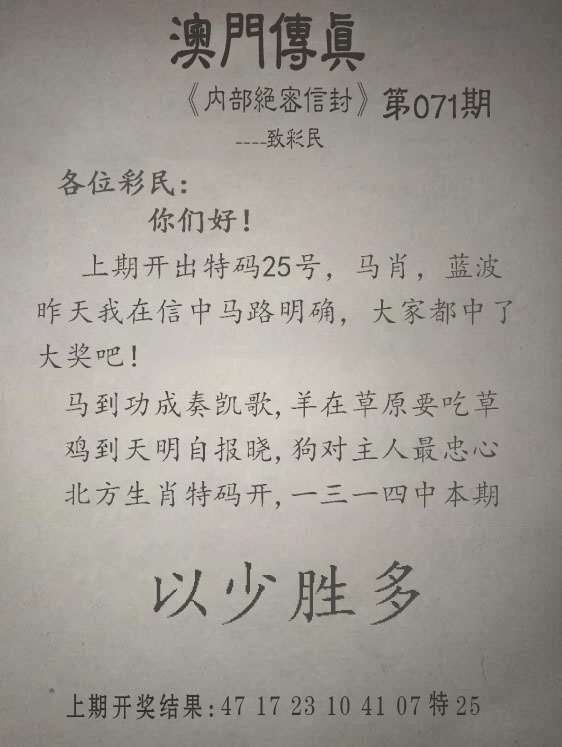 澳門傳眞
《内部絕密信封》第071期
----致彩民
各位彩民：
你们好！
上期开出特码25号，马肖，蓝波
昨天我在信中马路明确，大家都中了
大奖吧！
马到功成奏凯歌,羊在草原要吃草
鸡到天明自报晓,狗对主人最忠心
北方生肖特码开,一三一四中本期
以少胜多
上期开奖结果:47 17 23 10 41 07 特 25